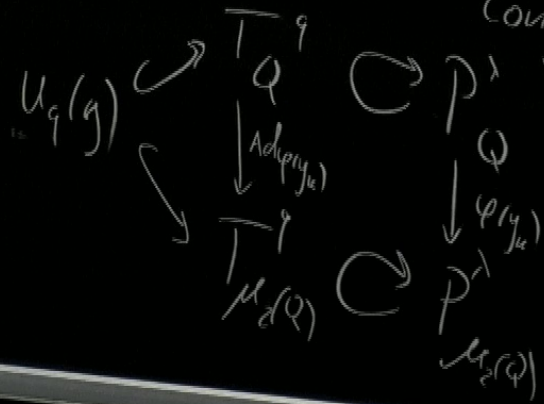 Con
U_q(g) ↪ T_Q^q ↻ P_Q^λ
↓ Ad φ(y_k) ↓ φ(y_k)
↪ T_{μ_k(Q)}^q ↻ P_{μ_k(Q)}^λ